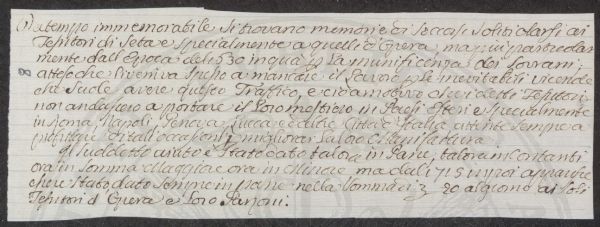 Da tempo immemorabile si trovano memorie di soccorsi soliti darsi ai
Tessitori di Seta e specialmente a quelli d'Opera, ma più particolar
mente dall'Epoca del 1530 in qua p la munificenza dei Sovrani;
attesoche si veniva spesso a mancare il Lavoro p le inevitabili vicende
che suole avere questo Traffico, e ciò ad che i detti Tessitori
non andassero a portare il loro mestiero in Paesi Esteri e specialmente
in Roma Napoli Genova Lucca ed altre Città d'Italia attente sempre a
profittare di tali occasioni p migliorar la loro Manifattura.
Il suddetto aiuto è stato dato talora in Pane, talora in Contanti
ora in somma maggiore ora in minore ma dal 1715 in poi apparisce
che è stato dato sempre in pane nella somma di 20 al giorno ai soli
Tessitori d'Opera e loro Garzoni.